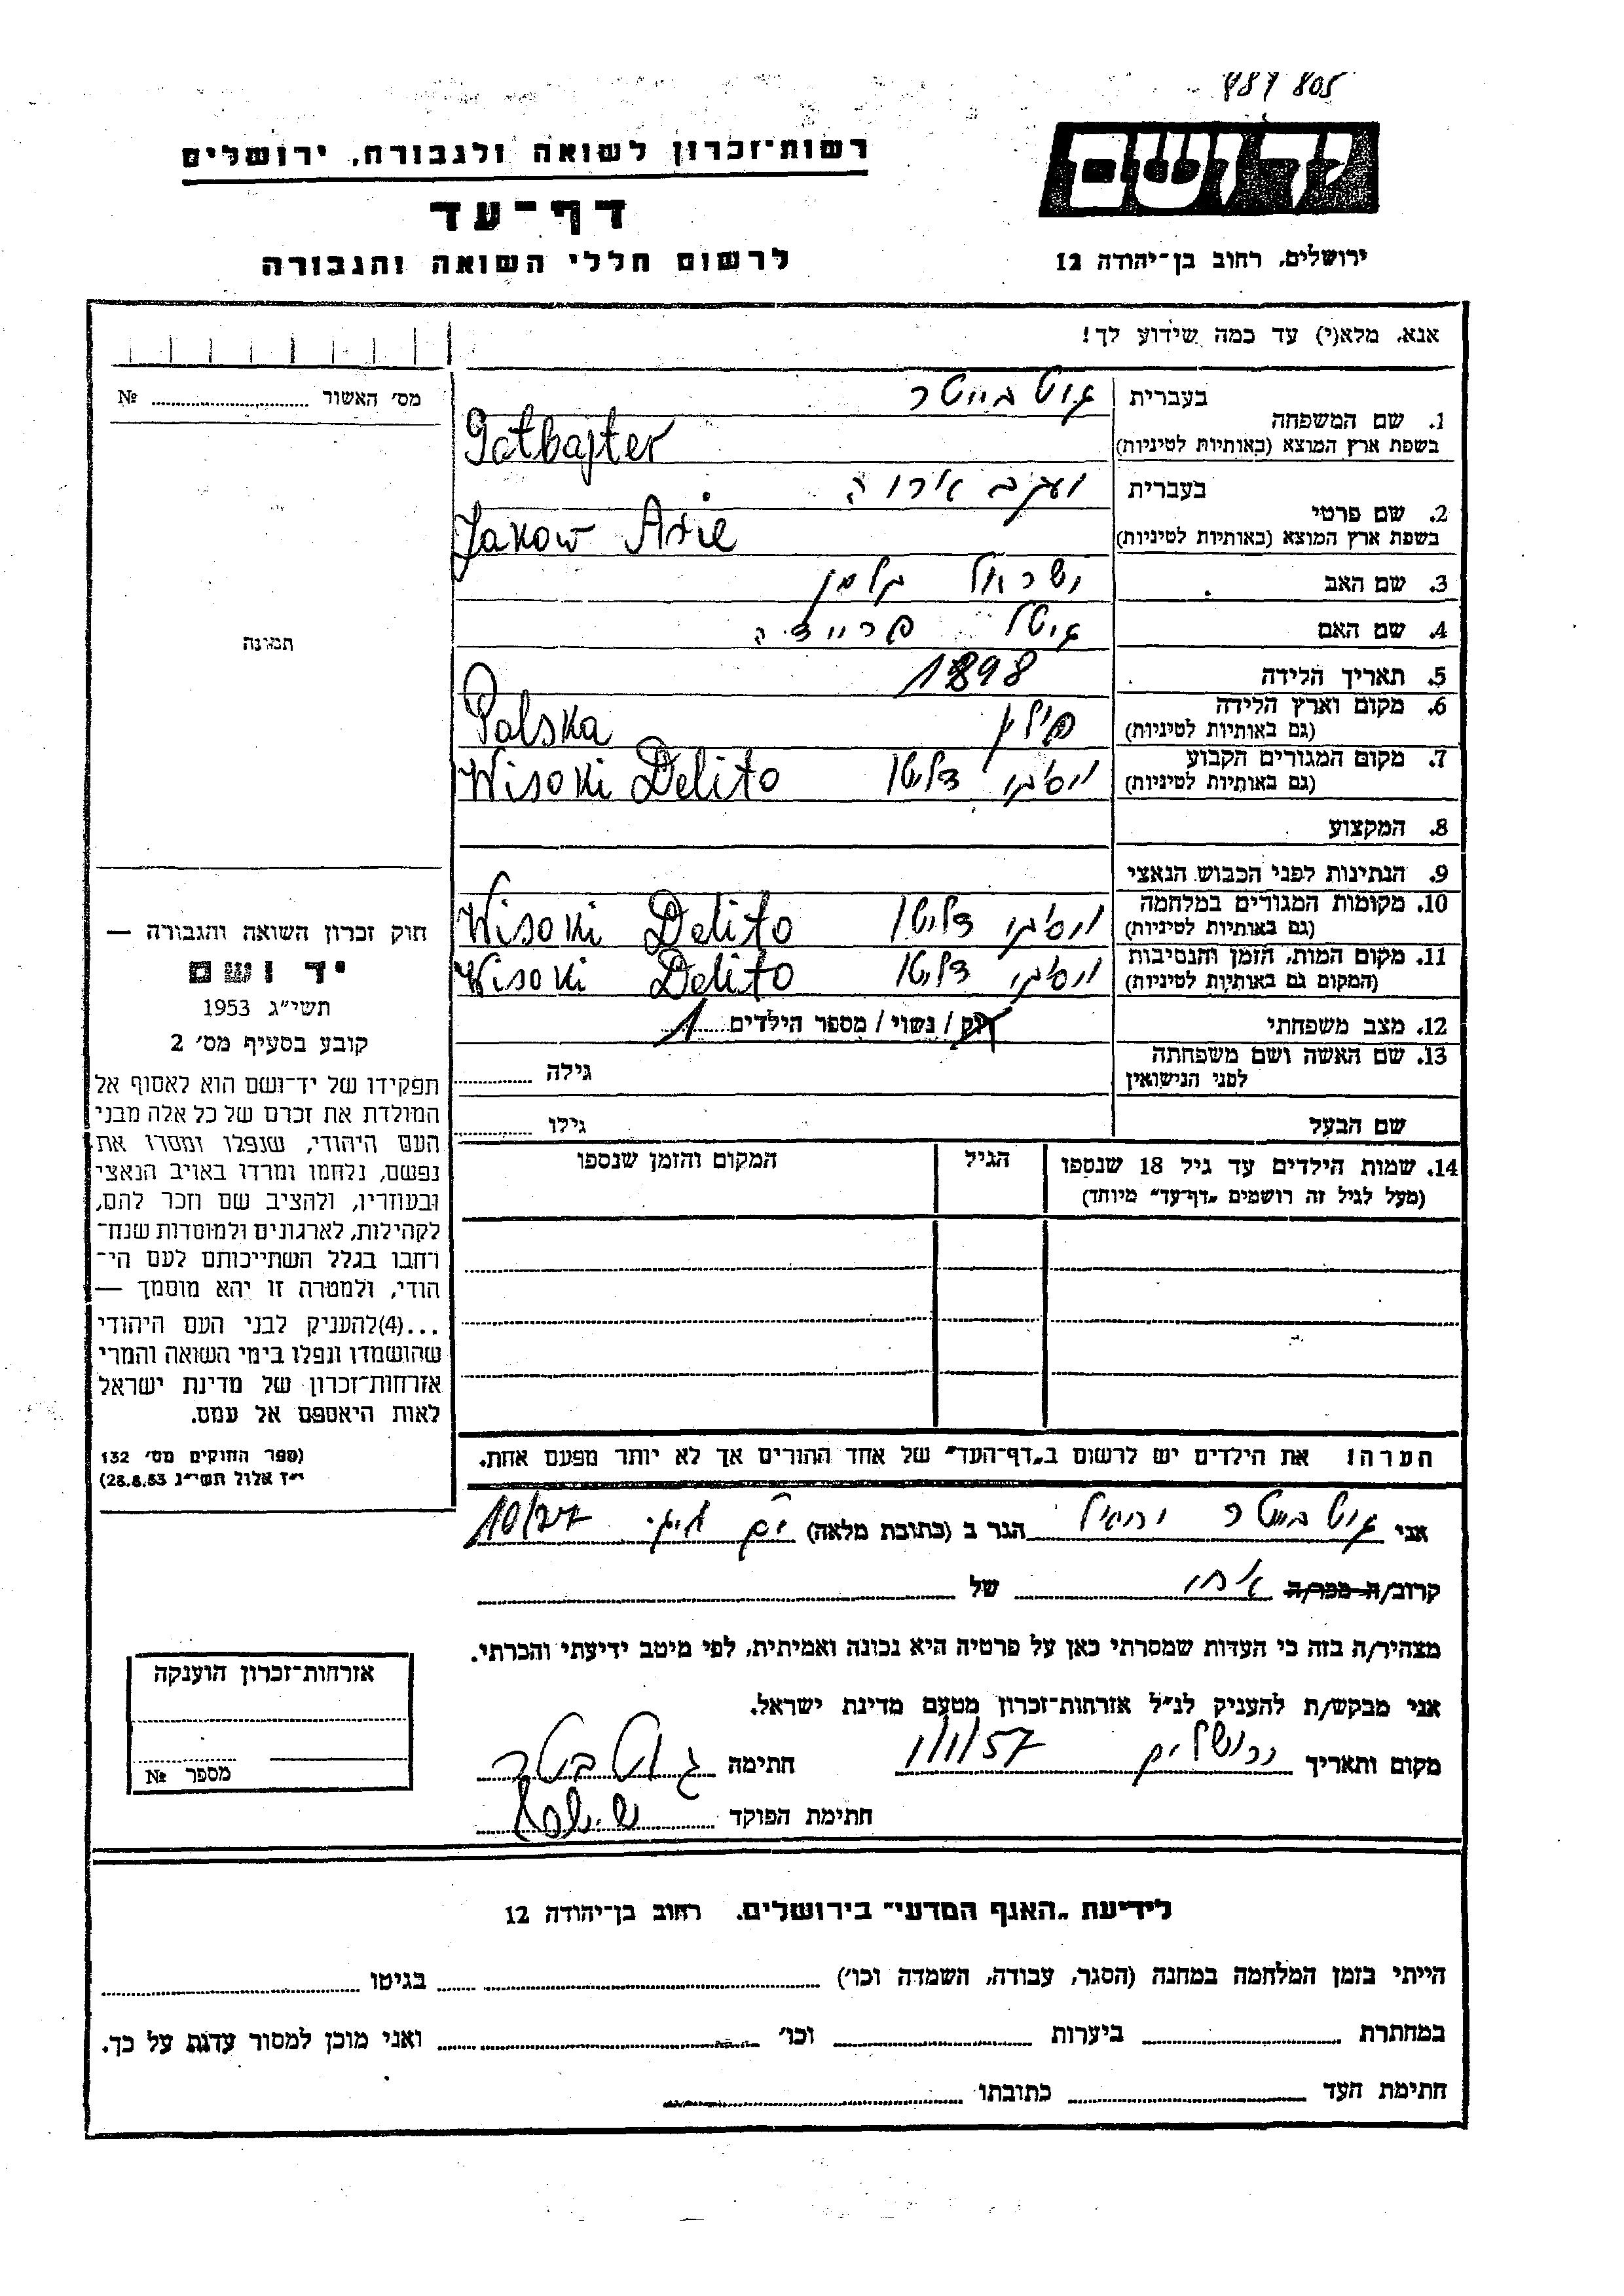 487 805
יד ושם
רשות־זכרון לשואה ולגבורה, ירושלים
דף־עד
לרשום חללי השואה והגבורה
ירושלים, רחוב בן־יהודה 12
אנא, מלא(י) עד כמה שידוע לך!
מס׳ האשור № 
תמונה
1. שם המשפחה
בעברית גוטבייטר
בשפת ארץ המוצא (באותיות לטיניות) Gotbajter
2. שם פרטי
בעברית יעקב אריה
בשפת ארץ המוצא (באותיות לטיניות) Jakow Arie
3. שם האב ישראל קלמן
4. שם האם גיטל פריידה
5. תאריך הלידה 1898
6. מקום וארץ הלידה
(גם באותיות לטיניות) פולין Polska
7. מקום המגורים הקבוע
(גם באותיות לטיניות) ויסוקי דליטו Wisoki Delito
8. המקצוע
9. הנתינות לפני הכבוש הנאצי
10. מקומות המגורים במלחמה
(גם באותיות לטיניות) ויסוקי דליטו Wisoki Delito
11. מקום המות, הזמן והנסיבות
(המקום גם באותיות לטיניות) ויסוקי דליטו Wisoki Delito
12. מצב משפחתי רוק / נשוי / מספר הילדים 1
13. שם האשה ושם משפחתה
לפני הנישואין גילה
שם הבעל גילו
14. שמות הילדים עד גיל 18 שנספו
(מעל לגיל זה רושמים „דף־עד״ מיוחד)
הגיל
המקום והזמן שנספו
חוק זכרון השואה והגבורה —
יד ושם
תשי״ג 1953
קובע בסעיף מס׳ 2
תפקידו של יד־ושם הוא לאסוף אל
המולדת את זכרם של כל אלה מבני
העם היהודי, שנפלו ומסרו את
נפשם, נלחמו ומרדו באויב הנאצי
ובעוזריו, ולהציב שם וזכר להם,
לקהילות, לארגונים ולמוסדות שנח־
רחבו בגלל השתייכותם לעם הי־
הודי, ולמטרה זו יהא מוסמך —
...(4)להעניק לבני העם היהודי
שהושמדו ונפלו בימי השואה והמרי
אזרחות־זכרון של מדינת ישראל
לאות היאספם אל עמם.
(ספר החוקים מס׳ 132
י״ז אלול תשי״ג 28.8.53)
הערה! את הילדים יש לרשום ב„דף־העד״ של אחד ההורים אך לא יותר מפעם אחת.
אני גוטבייטר הגר ב (כתובת מלאה) 10/77
קרוב/ה מכר/ה אחי של
מצהיר/ה בזה כי העדות שמסרתי כאן על פרטיה היא נכונה ואמיתית, לפי מיטב ידיעתי והכרתי.
אני מבקש/ת להעניק לנ״ל אזרחות־זכרון מטעם מדינת ישראל.
מקום ותאריך ירושלים 1/1/57 חתימה גוטבייטר
חתימת הפוקד
אזרחות־זכרון הוענקה
מספר №
לידיעת „האגף המדעי״ בירושלים, רחוב בן־יהודה 12
הייתי בזמן המלחמה במחנה (הסגר, עבודה, השמדה וכו׳) בגיטו
במחתרת ביערות וכו׳ ואני מוכן למסור עדות על כך.
חתימת העד כתובתו